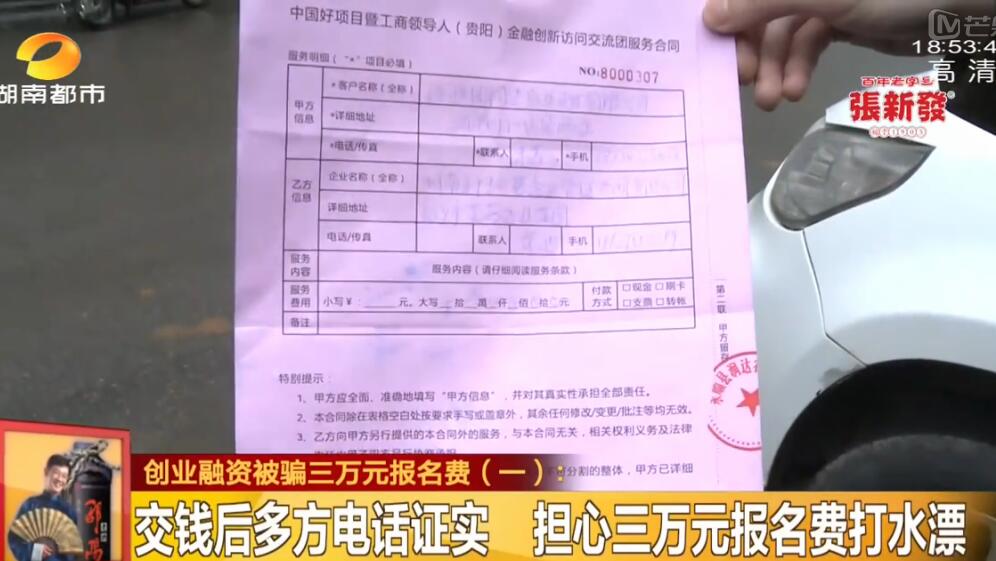 中国好项目暨工商领导人（贵阳）金融创新访问交流团服务合同
服务明细（“*”项目必填）
NO:8000307
甲方信息
*客户名称（全称）
*详细地址
*电话/传真
*联系人
*手机
乙方信息
企业名称（全称）
详细地址
电话/传真
联系人
手机
服务内容
服务内容（请仔细阅读服务条款）
服务费用
小写￥：______元。大写__拾__萬__仟__佰__拾__元
付款方式
□现金 □刷卡
□支票 □转帐
备注
第二联 甲方留存
特别提示：
1、甲方应全面、准确地填写“甲方信息”，并对其真实性承担全部责任。
2、本合同除在表格空白处按要求手写或盖章外，其余任何修改/变更/批注等均无效。
3、乙方向甲方另行提供的本合同外的服务，与本合同无关，相关权利义务及法律
可分割的整体，甲方已详细
湖南都市
18:53:4
高清
百年老字号
張新發
创业融资被骗三万元报名费（一）：
交钱后多方电话证实 担心三万元报名费打水漂